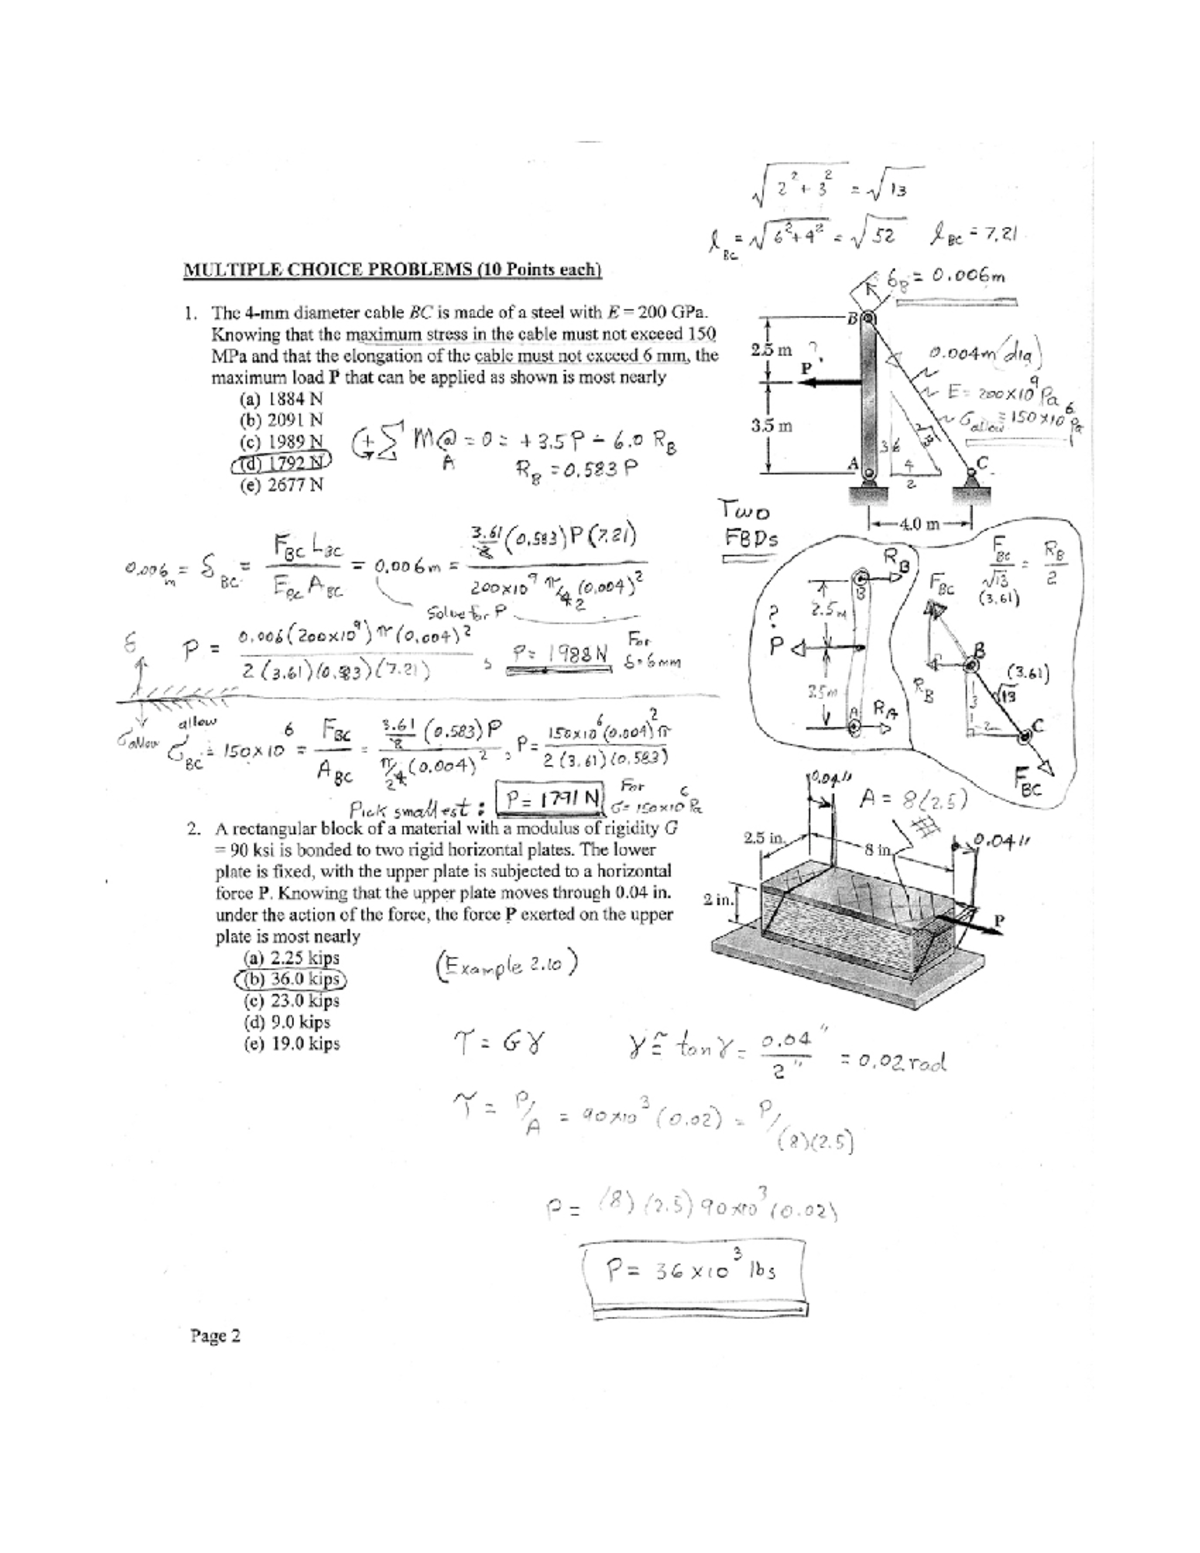 √2² + 3² = √13
l BC = √6² + 4² = √52   l BC = 7.21
MULTIPLE CHOICE PROBLEMS (10 Points each)
δB = 0.006m
1. The 4-mm diameter cable BC is made of a steel with E = 200 GPa.
Knowing that the maximum stress in the cable must not exceed 150
MPa and that the elongation of the cable must not exceed 6 mm, the
maximum load P that can be applied as shown is most nearly
(a) 1884 N
(b) 2091 N
(c) 1989 N
(d) 1792 N
(e) 2677 N
B
2.5 m
?
P
3.5 m
A
C
4.0 m
0.004m (dia)
E = 200×10⁹ Pa
σallow = 150×10⁶ Pa
3 6
4
2
√13
(+ Σ M@A = 0 = +3.5P − 6.0 RB
RB = 0.583 P
TWO
FBDs
0.006 m = δBC = FBC LBC / EBC ABC = 0.006m = 3.61/2 (0.583)P(7.21) / 200×10⁹ π/4 (0.004)²
Solve for P
P = 0.006(200×10⁹)π(0.004)² / 2(3.61)(0.583)(7.21) , P = 1988N For δ=6mm
RB
B
2.5m
?
P
3.5m
A
RA
FBC / √13 = RB / 2
(3.61)
FBC
B
RB
(3.61)
√13
3
2
C
FBC
σallow
allow
σBC = 150×10⁶ = FBC / ABC = 3.61/2 (0.583)P / π/4 (0.004)² , P = 150×10⁶(0.004)²π / 2(3.61)(0.583)
Pick smallest: P = 1791 N For σ = 150×10⁶ Pa
2. A rectangular block of a material with a modulus of rigidity G
= 90 ksi is bonded to two rigid horizontal plates. The lower
plate is fixed, with the upper plate is subjected to a horizontal
force P. Knowing that the upper plate moves through 0.04 in.
under the action of the force, the force P exerted on the upper
plate is most nearly
(a) 2.25 kips
(b) 36.0 kips
(c) 23.0 kips
(d) 9.0 kips
(e) 19.0 kips
0.04"
A = 8(2.5)
2.5 in.
8 in.
0.04"
2 in.
P
(Example 2.10)
τ = Gγ   γ ≅ tan γ = 0.04" / 2" = 0.02 rad
τ = P/A = 90×10³ (0.02) = P/(8)(2.5)
P = (8)(2.5) 90×10³ (0.02)
P = 36×10³ lbs
Page 2